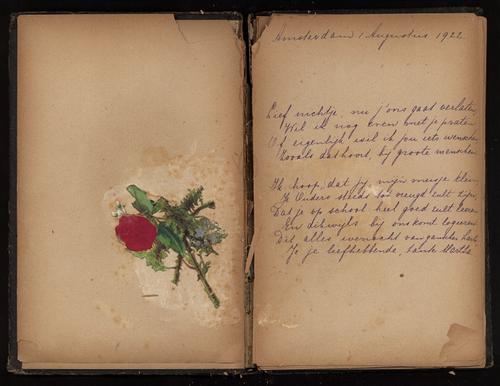 Amsterdam 1 Augustus 1922
Lief nichtje, nu j' ons gaat verlaten
Wil ik nog even met je praten
Of eigenlijk wil ik jou iets wenschen
Zooals dat hoort, bij groote menschen
Ik hoop, dat jij, mijn meisje klein
Je Ouders steeds tot vreugd zult zijn
Dat je op school heel goed zult leeren
En dikwijls bij ons komt logeeren
Dit alles wenscht van ganscher harte
Je je liefhebbende, tante Martha